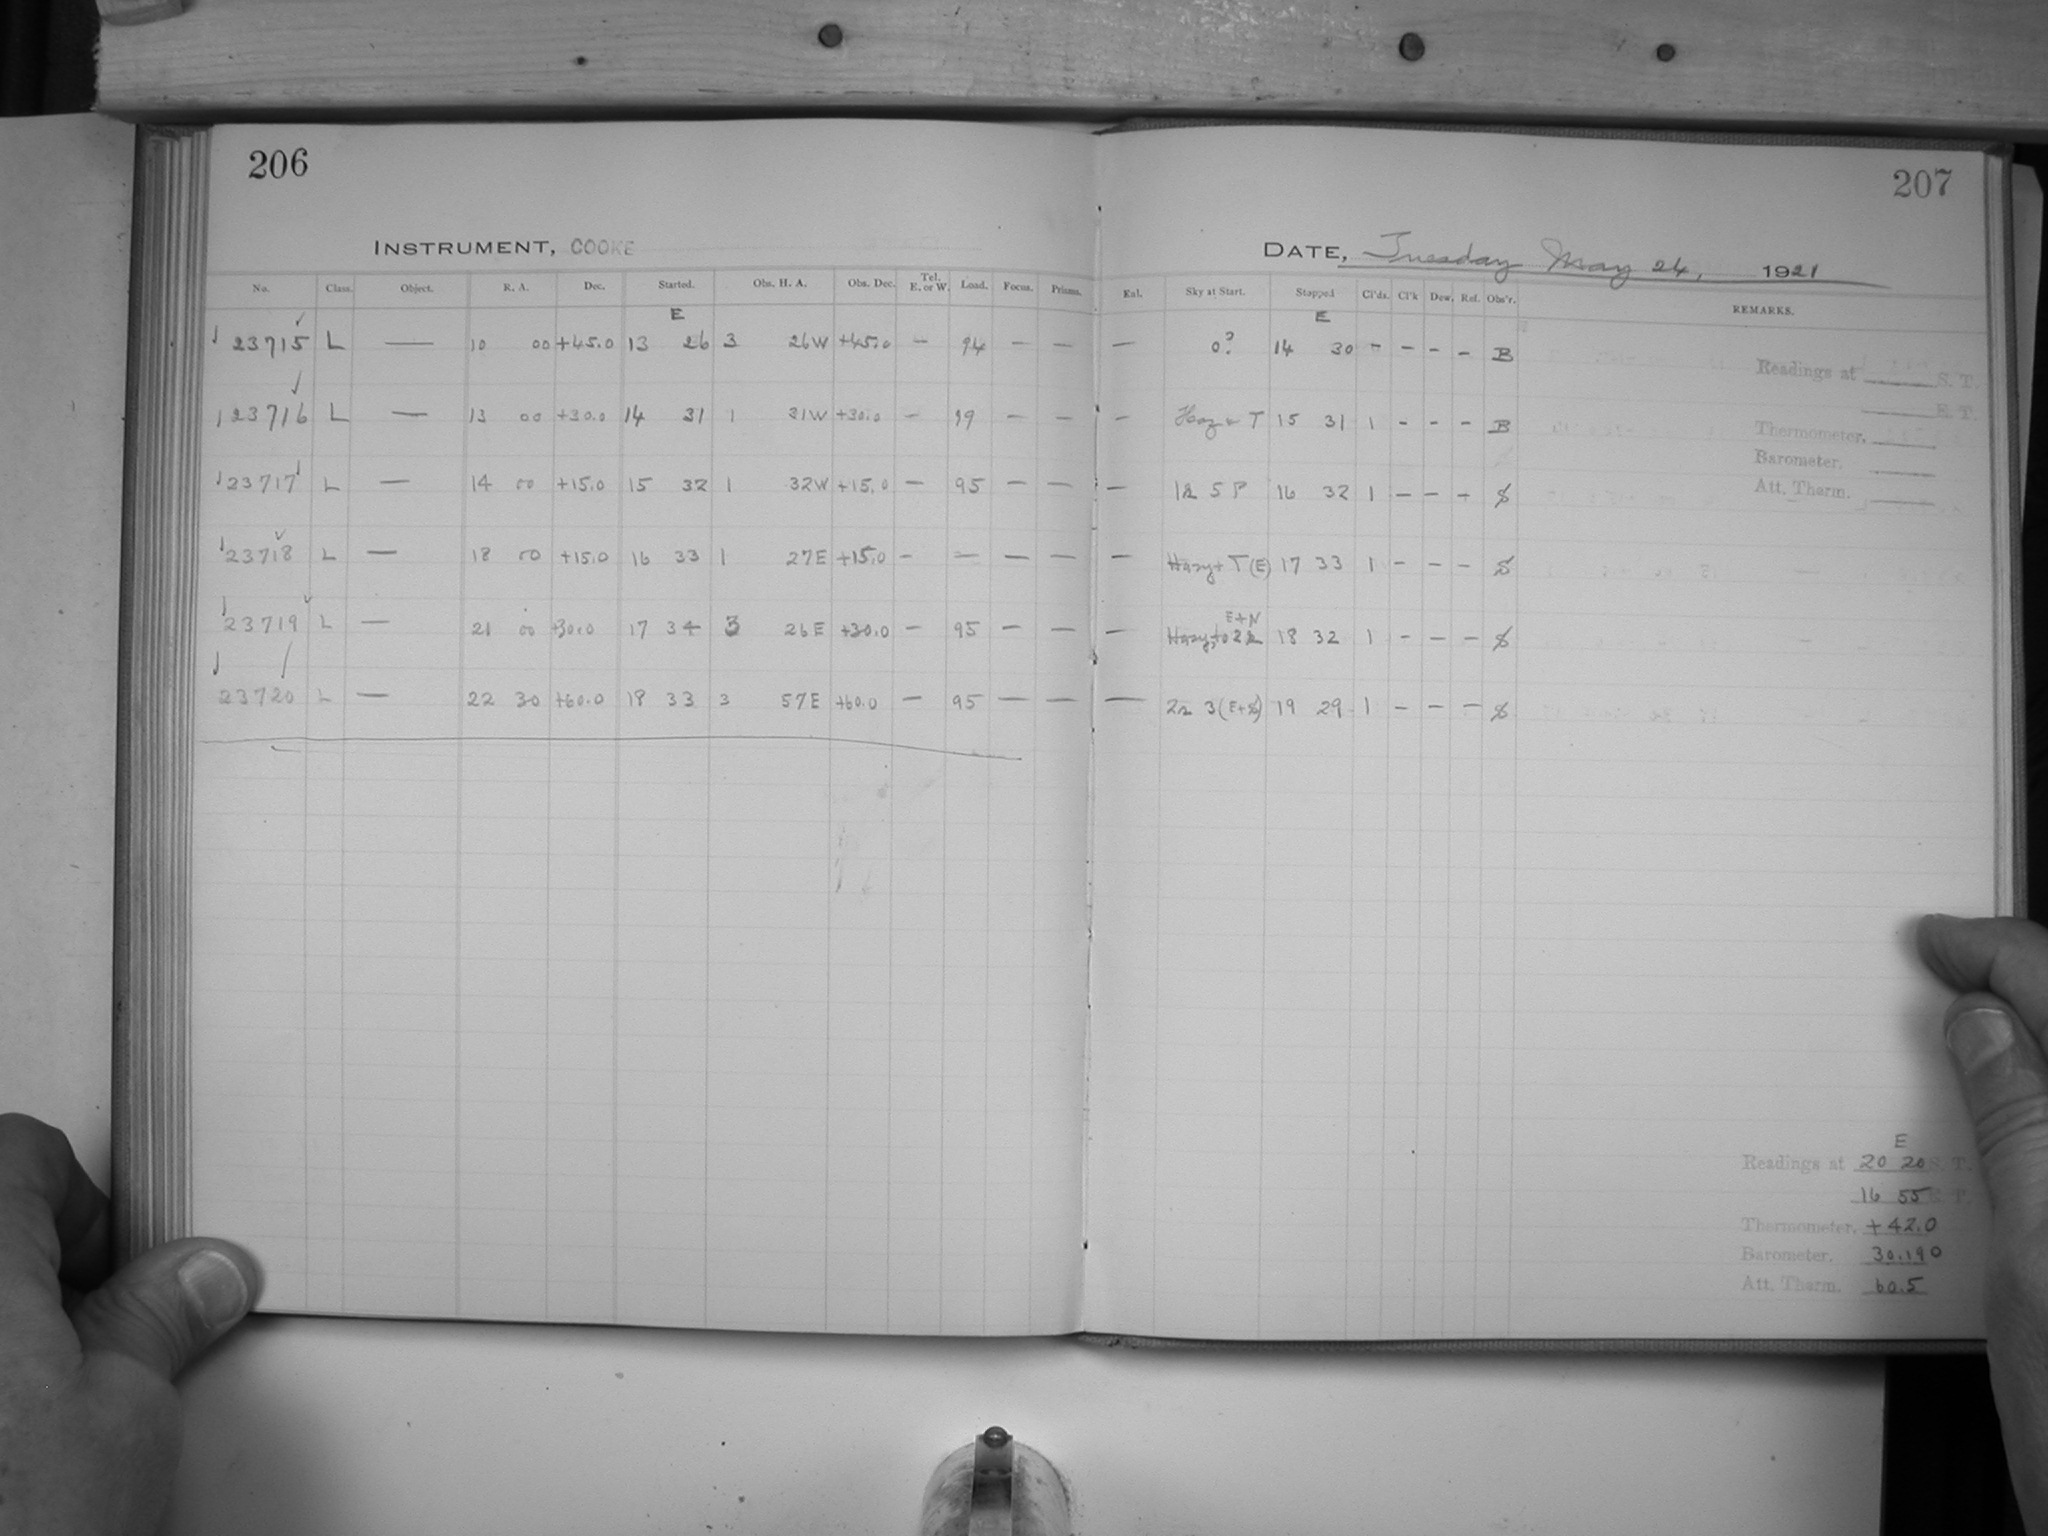 206
207
INSTRUMENT, COOKE
DATE, Tuesday May 24, 1921
No. Class. Object. R. A. Dec. Started. Obs. H. A. Obs. Dec. Tel. E. or W. Load. Focus. Prisms. Exl. Sky at Start. Stopped Cl'ds. Cl'k Dew. Ref. Obs'r. REMARKS.
E E
23715 L — 10 00 +45.0 13 26 3 26W +45.0 — 94 — — — 0? 14 30 - - - - B
Readings at S. T.
E. T.
23716 L — 13 00 +30.0 14 31 1 31W +30.0 — 99 — — — T 15 31 1 - - - B
Thermometer.
Barometer.
Att. Therm.
23717 L — 14 00 +15.0 15 32 1 32W +15.0 — 95 — — — 5 P 16 32 1 - - - S
23718 L — 18 00 +15.0 16 33 1 27E +15.0 — — — — — Hazy + T (E) 17 33 1 - - - S
E+N
23719 L — 21 00 +30.0 17 34 3 26E +30.0 — 95 — — — Hazy 18 32 1 - - - S
23720 L — 22 30 +60.0 18 33 3 57E +60.0 — 95 — — — 3 (E+S) 19 29 1 - - - S
E
Readings at 20 20 S. T.
16 55 E. T.
Thermometer. +42.0
Barometer. 30.190
Att. Therm. 60.5